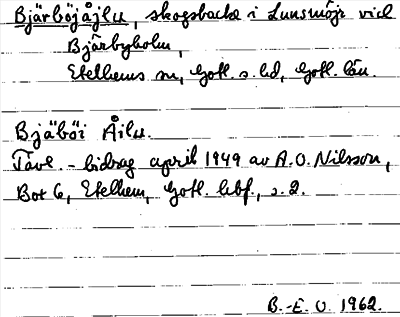 Bjärböjåjlu, skogsbacke i Lunsmöjr vid
Bjärbyholm,
Etelhems sn, Gotl. s. hd, Gotl. län.
Bjäböi Åilu.
Tävl. - bidrag april 1949 av A. O. Nilsson,
Box 6, Etelhem, Gotl. hbf., s. 2.
B.-E. O. 1962.